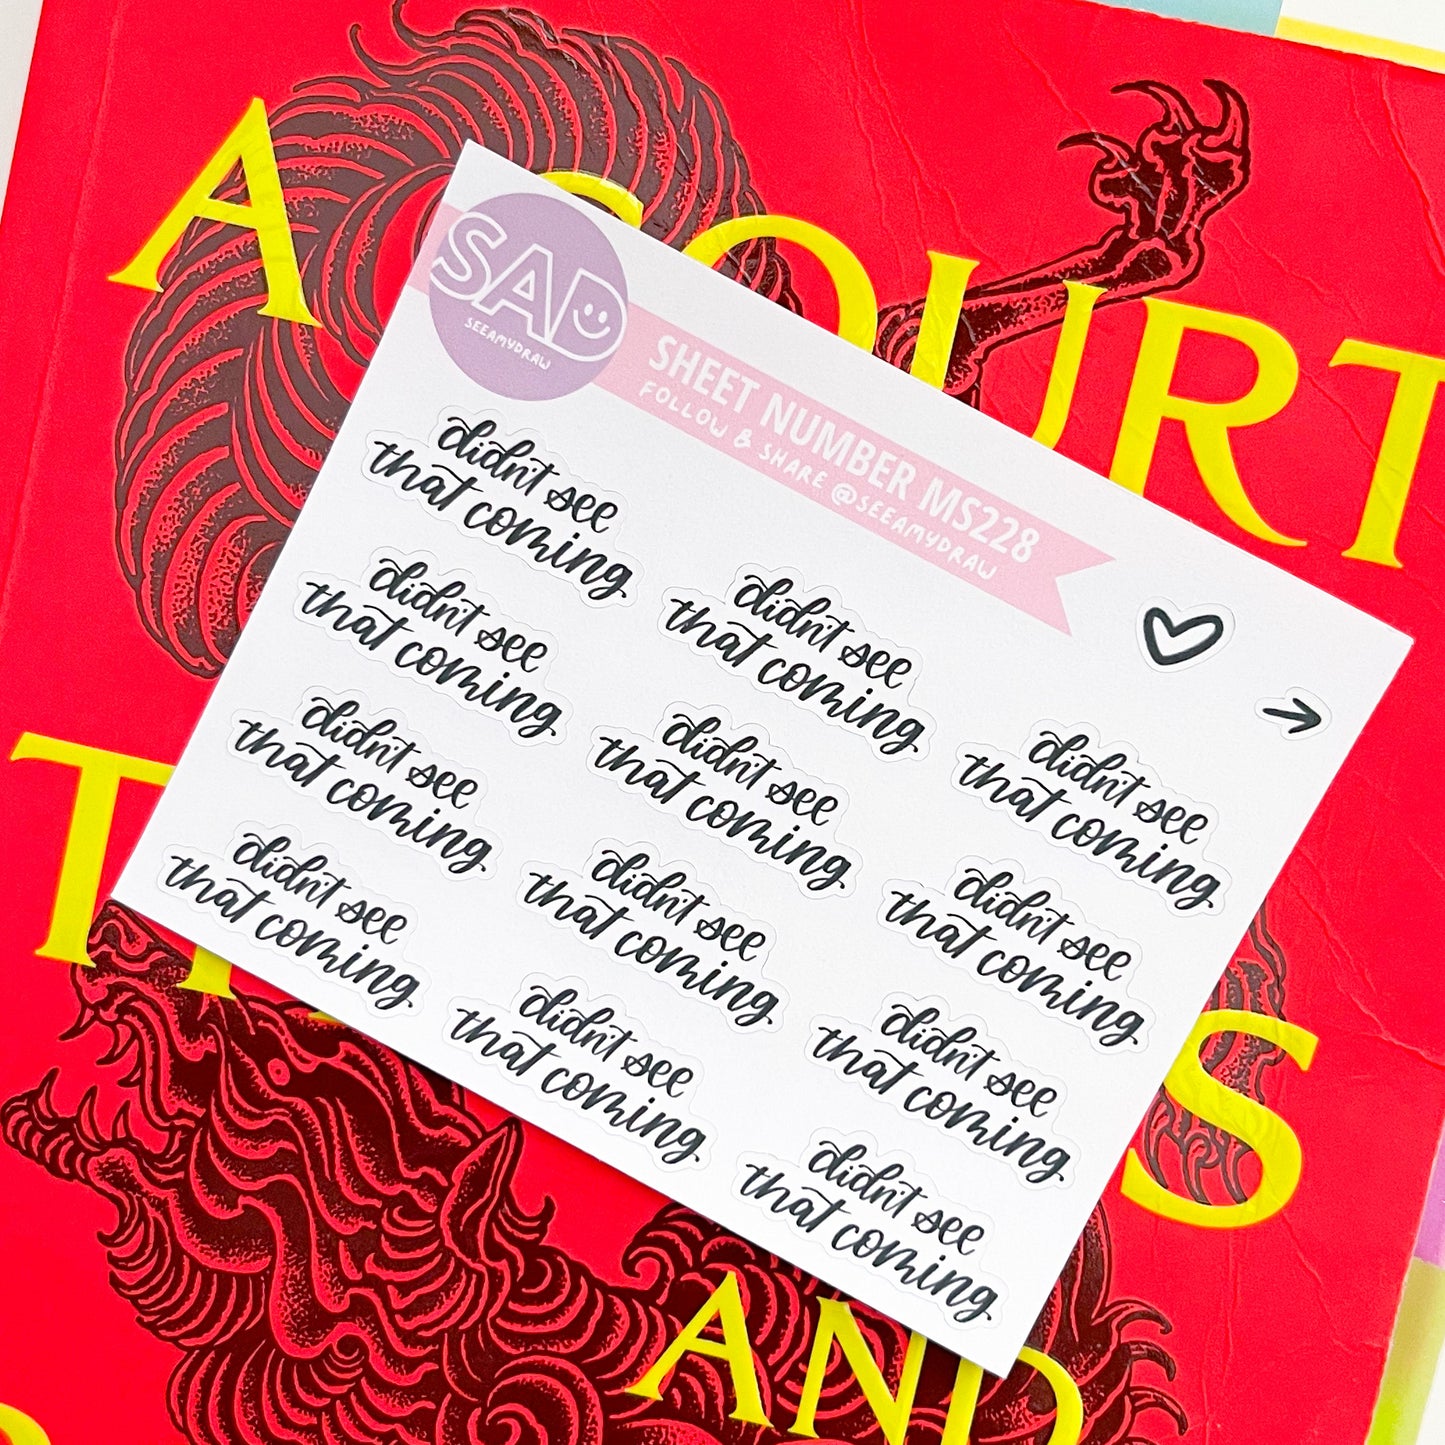 A COURT
AND
SAD
SEEAMYDRAW
SHEET NUMBER MS228
FOLLOW & SHARE @SEEAMYDRAW
didn't see
that coming
didn't see
that coming
didn't see
that coming
didn't see
that coming
didn't see
that coming
didn't see
that coming
didn't see
that coming
didn't see
that coming
didn't see
that coming
didn't see
that coming
didn't see
that coming
didn't see
that coming